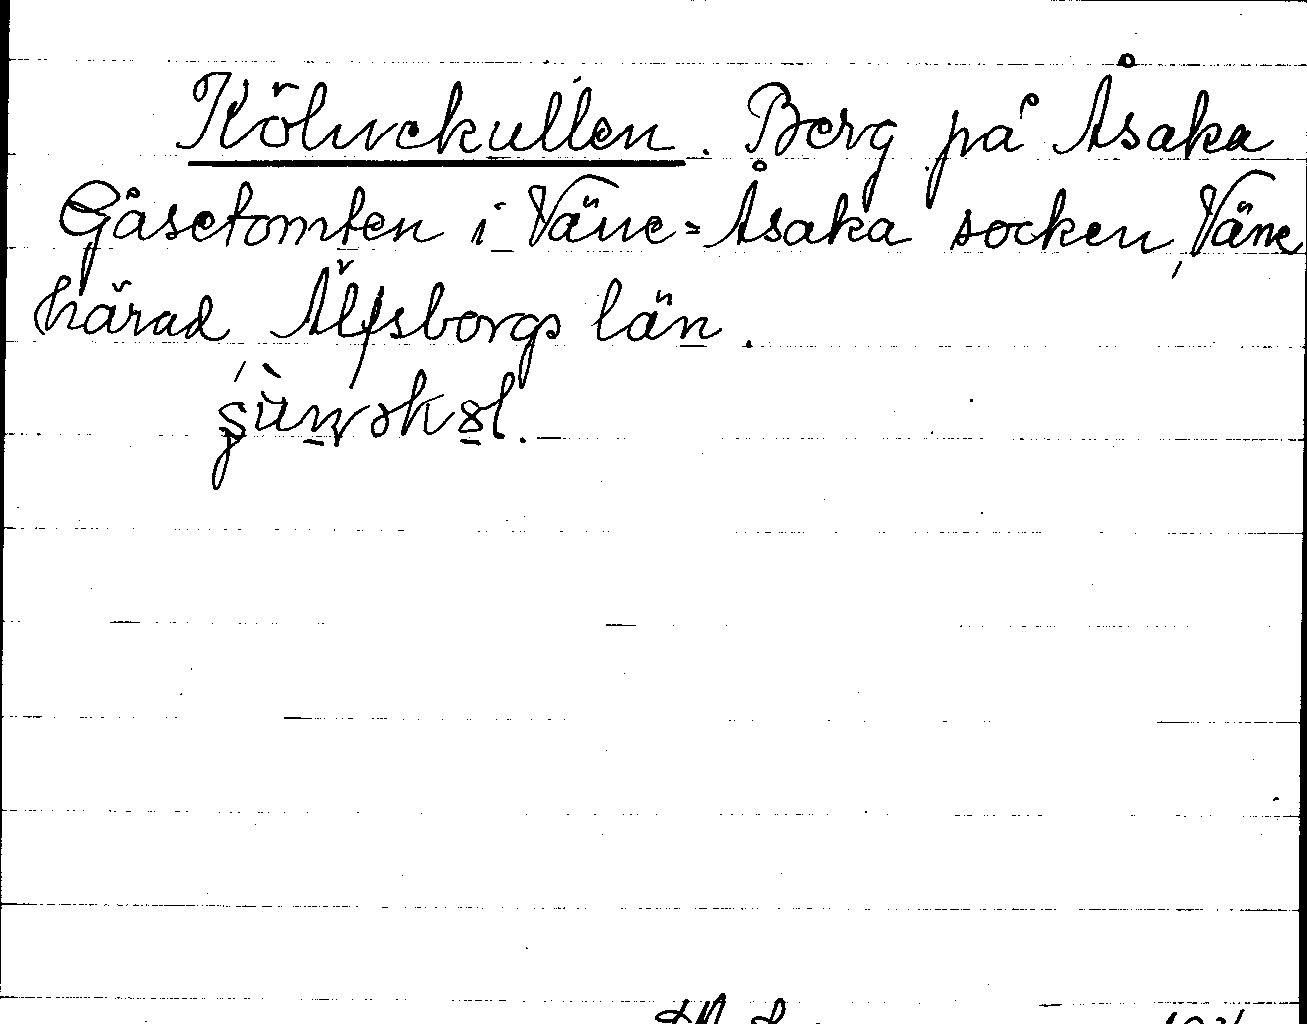 Kölnekullen. Berg på Åsaka
Gåsetomten i Väne-Åsaka socken, Väne
härad, Älfsborgs län.